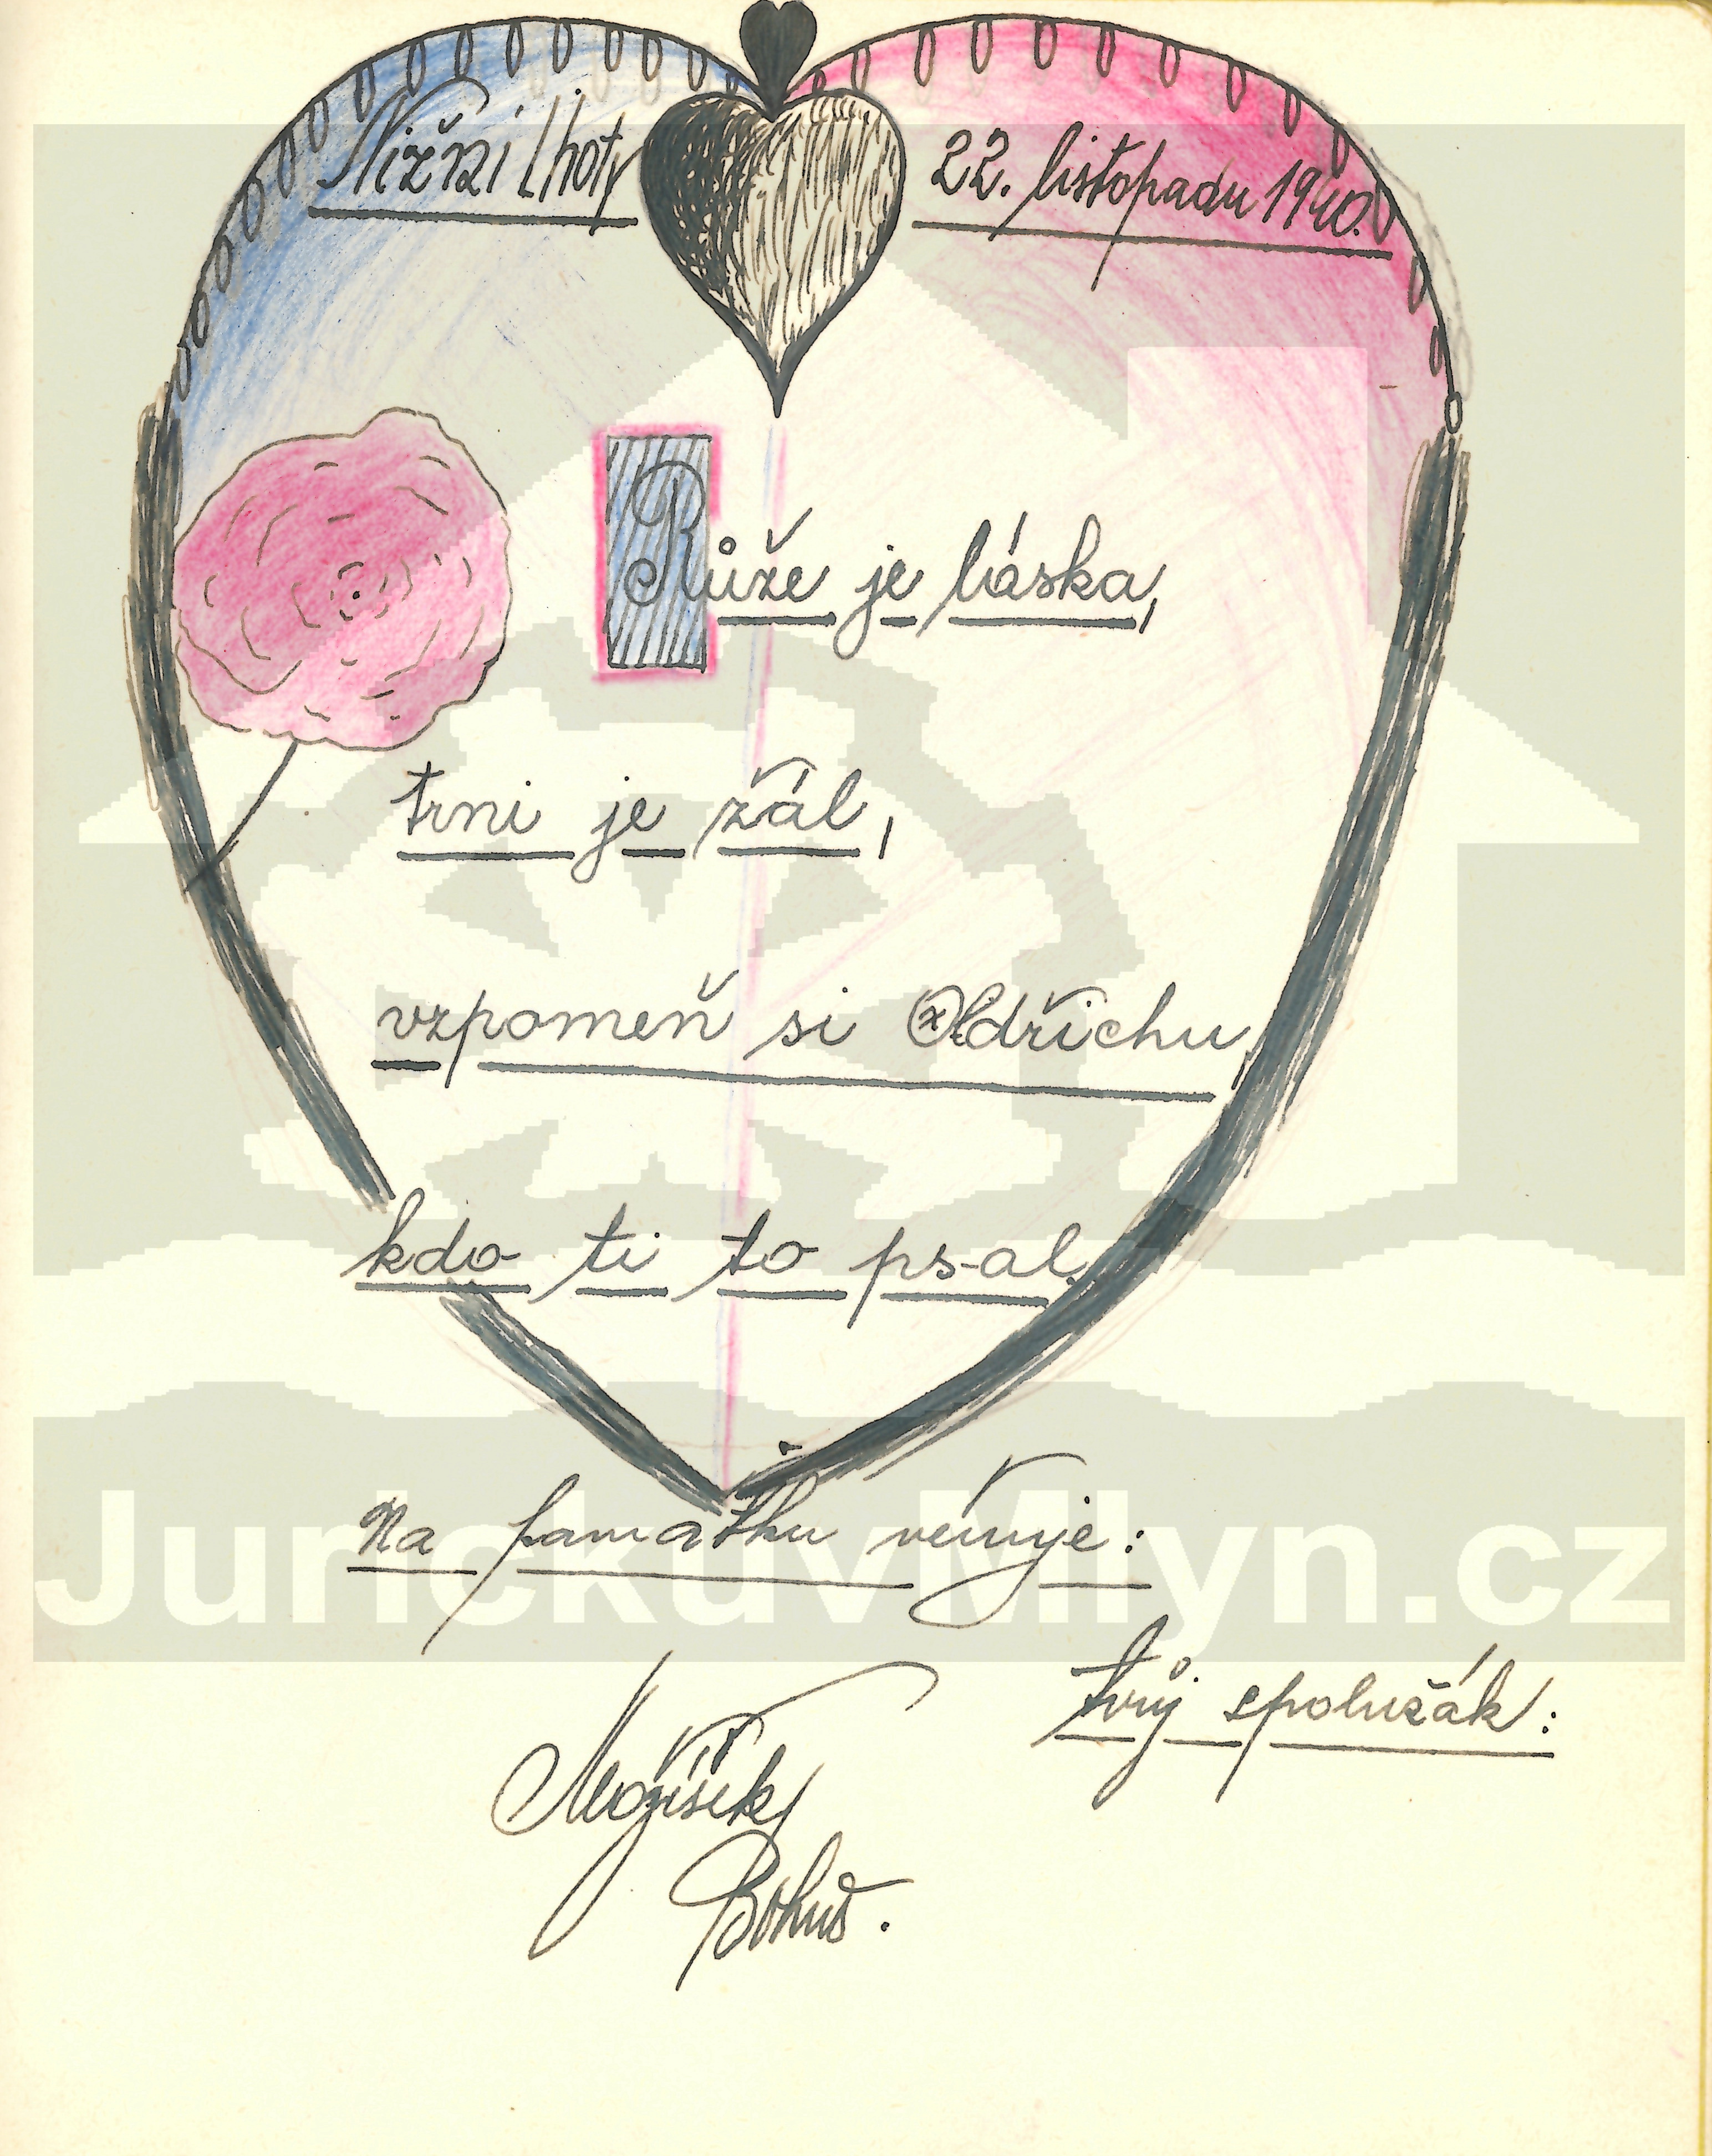 Nižní Lhoty 22. listopadu 1940.
Růže je láska,
trni je žál,
vzpomeň si Oldřichu,
kdo ti to psal.
Na památku věnuje:
tvůj spolužák:
Možíšek
Bohuš.
JurickuvMlyn.cz